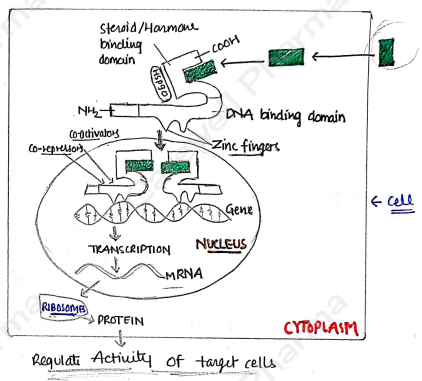 Steroid/Hormone
binding
domain
COOH
HSP90
NH2
DNA binding domain
Zinc fingers
Co-activators
Co-repressors
Gene
← Cell
TRANSCRIPTION
NUCLEUS
mRNA
RIBOSOME
PROTEIN
CYTOPLASM
Regulate Activity of target cells